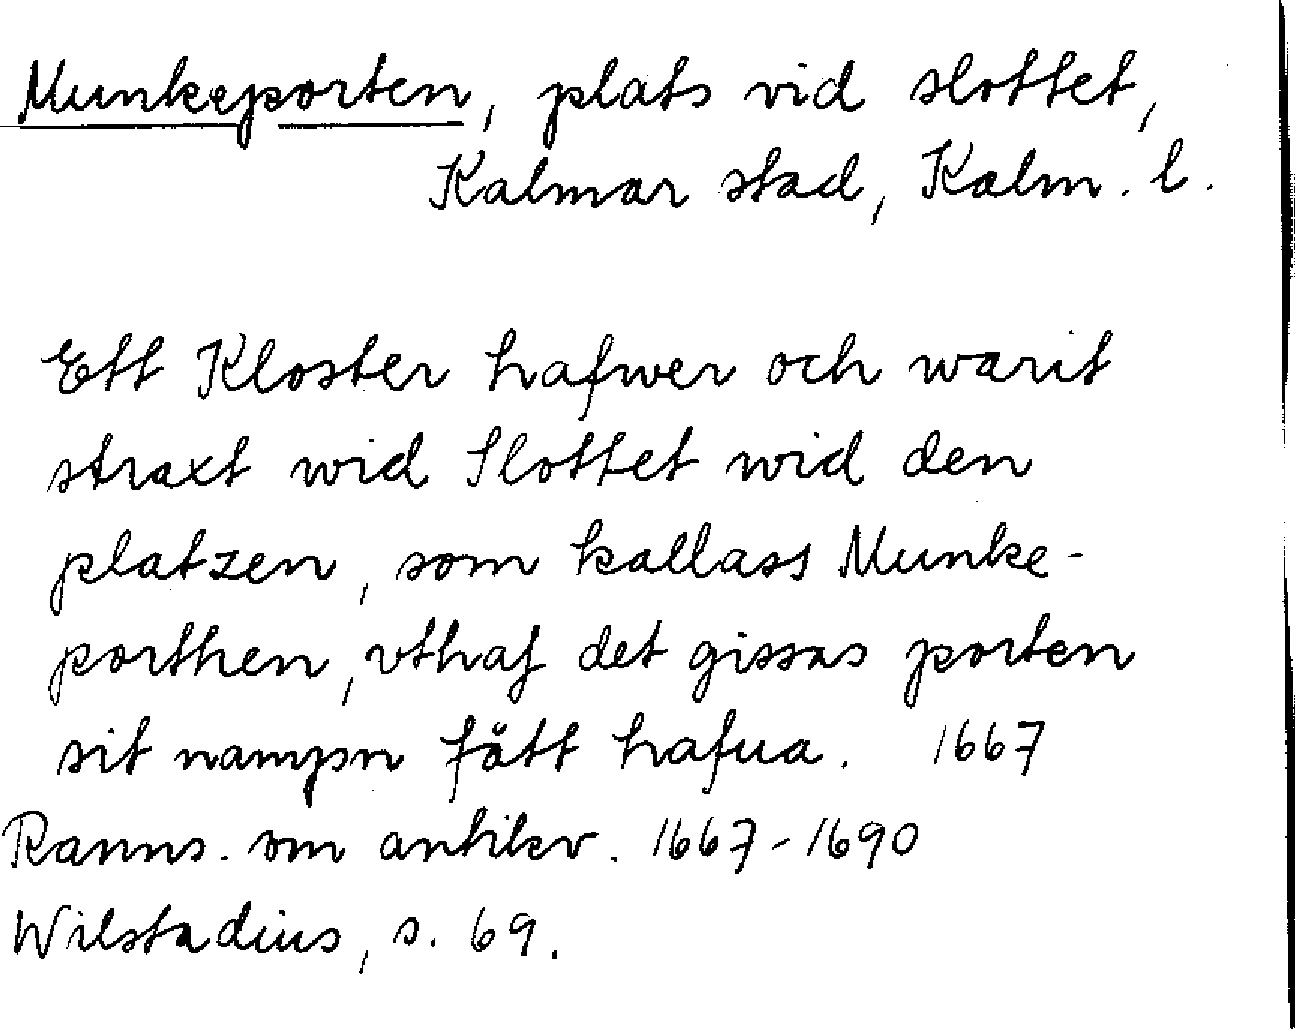 Munkeporten, plats vid slottet,
Kalmar stad, Kalm. l.
Ett Kloster hafwer och warit
straxt wid Slottet wid den
platzen, som kallass Munke-
porthen, vthaf det gissas porten
sit nampn fått hafua. 1667
Ranns. om antikv. 1667-1690
Wilstadius, s. 69.